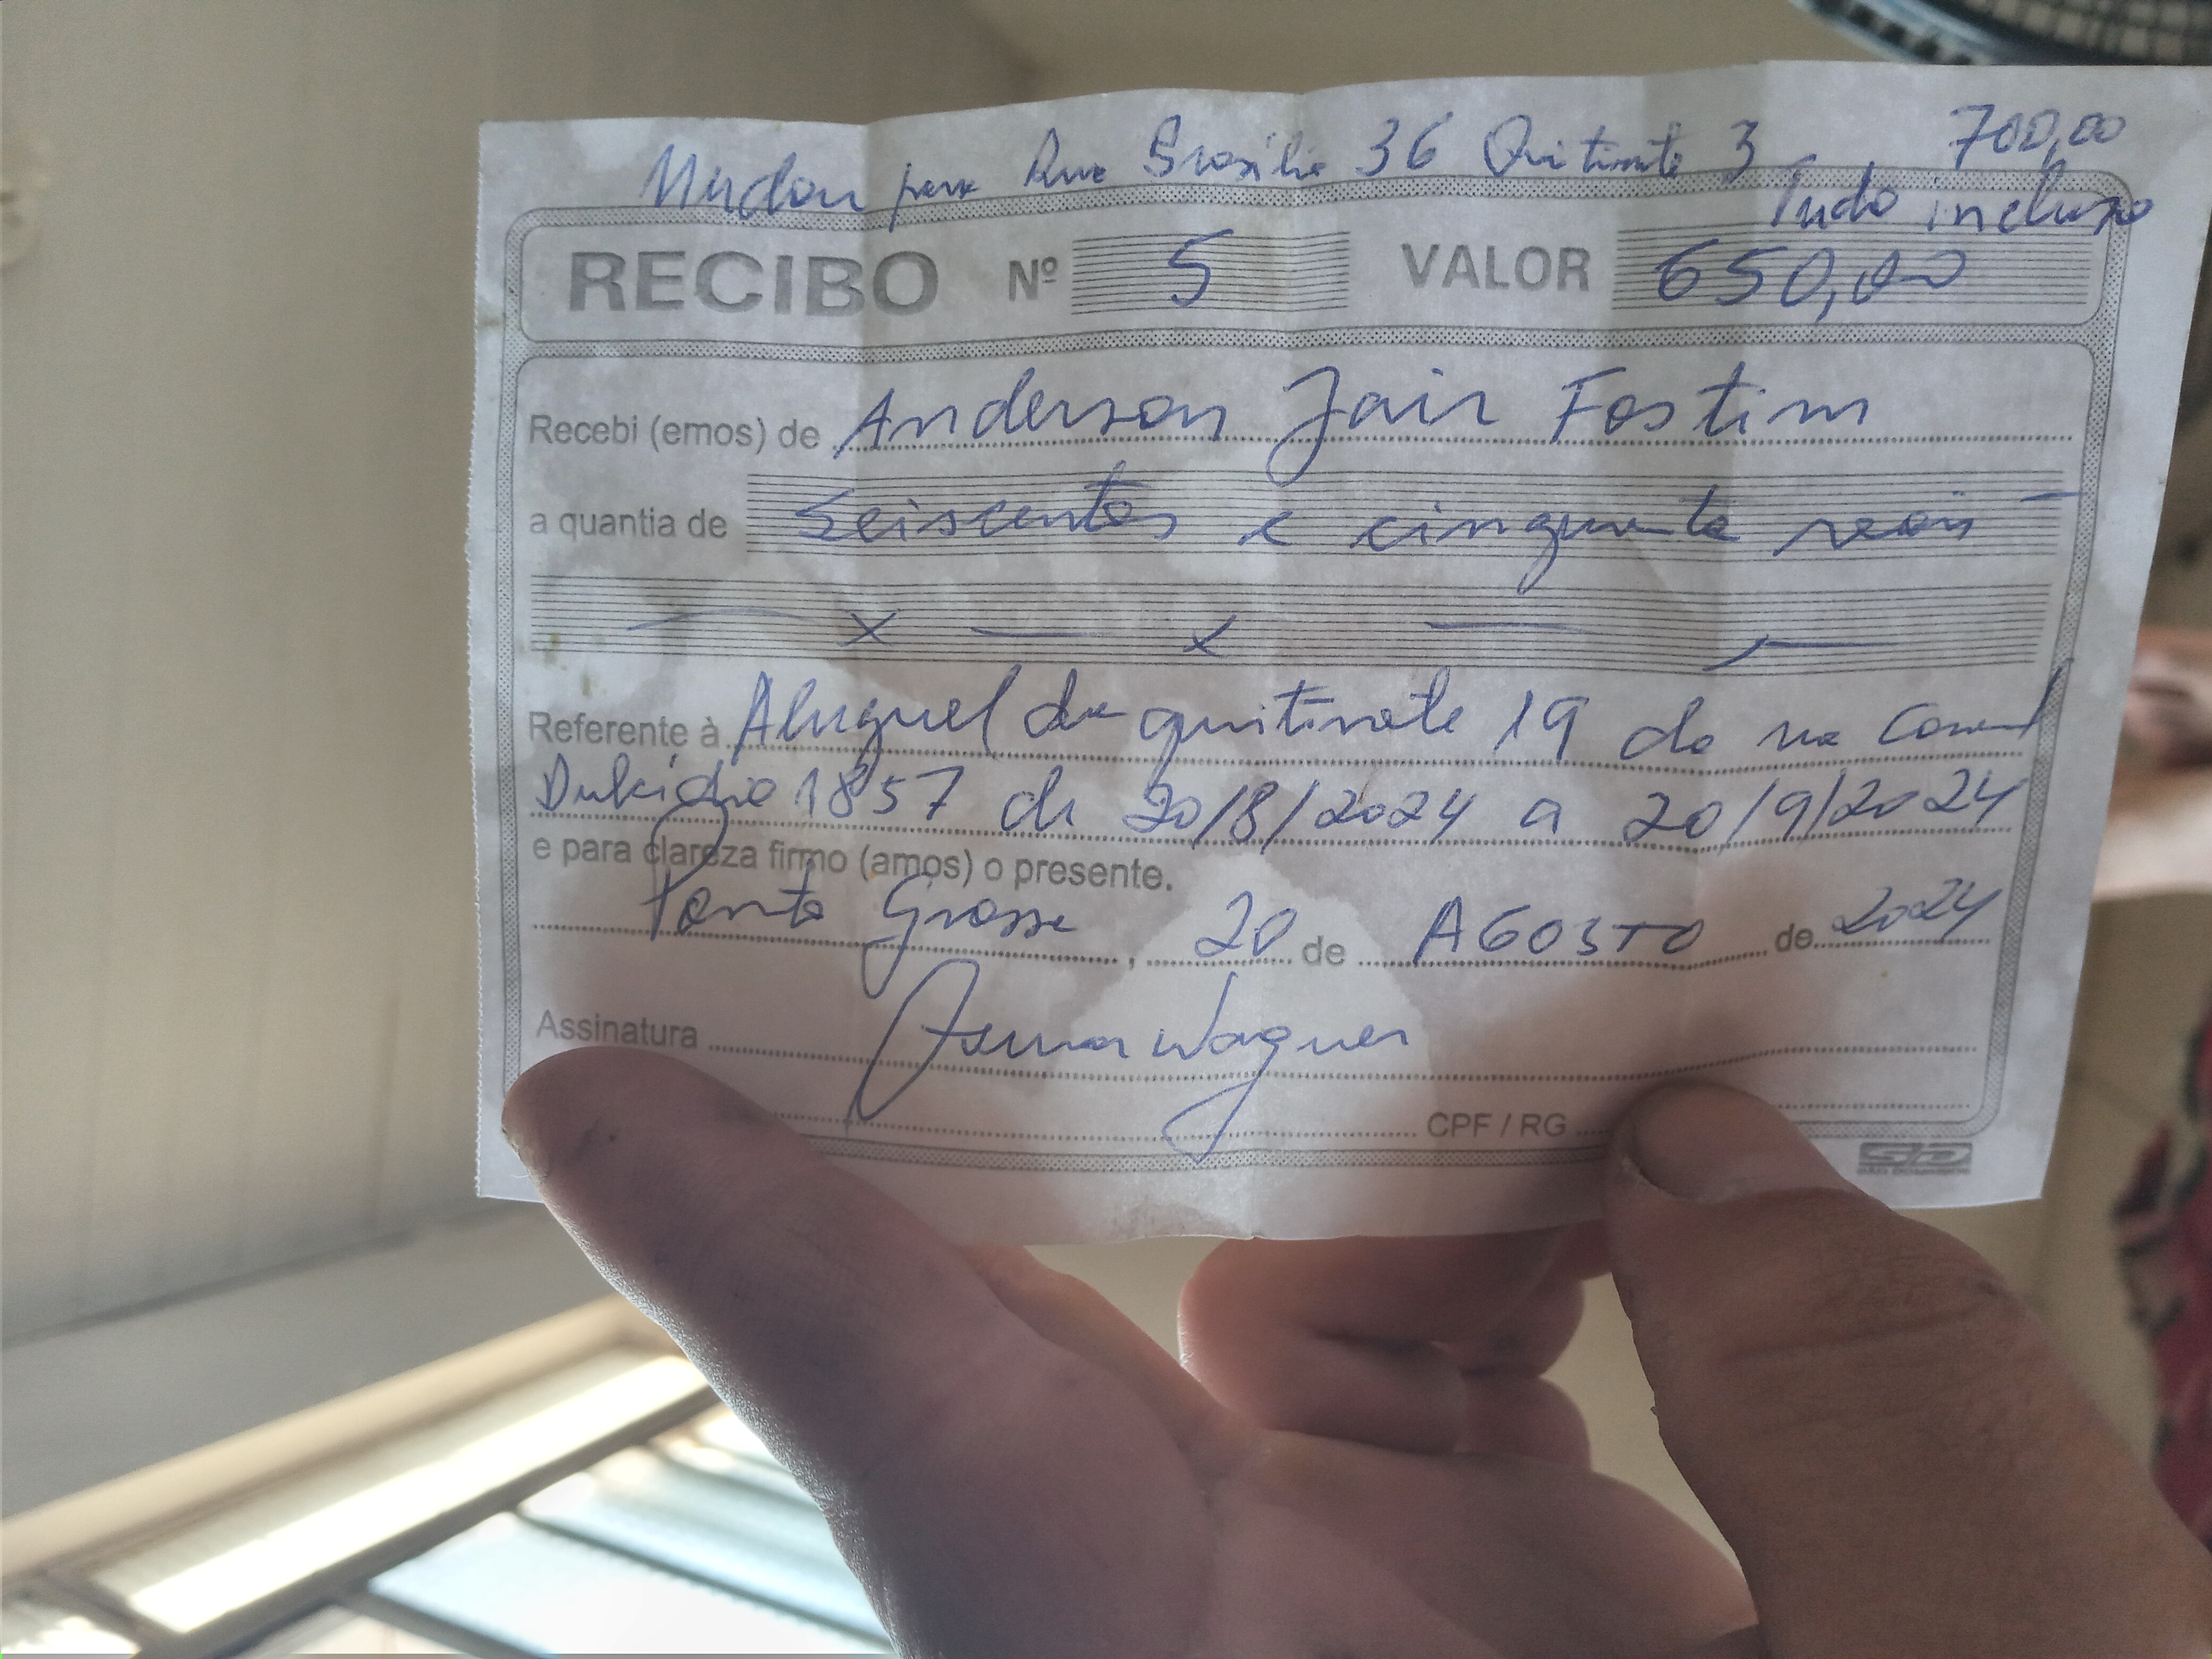 Mudou para Rua Brasilia 36 Quitinete 3 700,00
Tudo incluso
RECIBO Nº 5 VALOR 650,00
Recebi (emos) de Anderson Jair Fostim
a quantia de Seiscentos e cinquenta reais
x x
Referente à Aluguel da quitinete 19 da rua Coronel
1857 de 20/8/2024 a 20/9/2024
e para clareza firmo (amos) o presente.
Ponta Grossa, 20 de AGOSTO de 2024
Assinatura wagner
CPF / RG